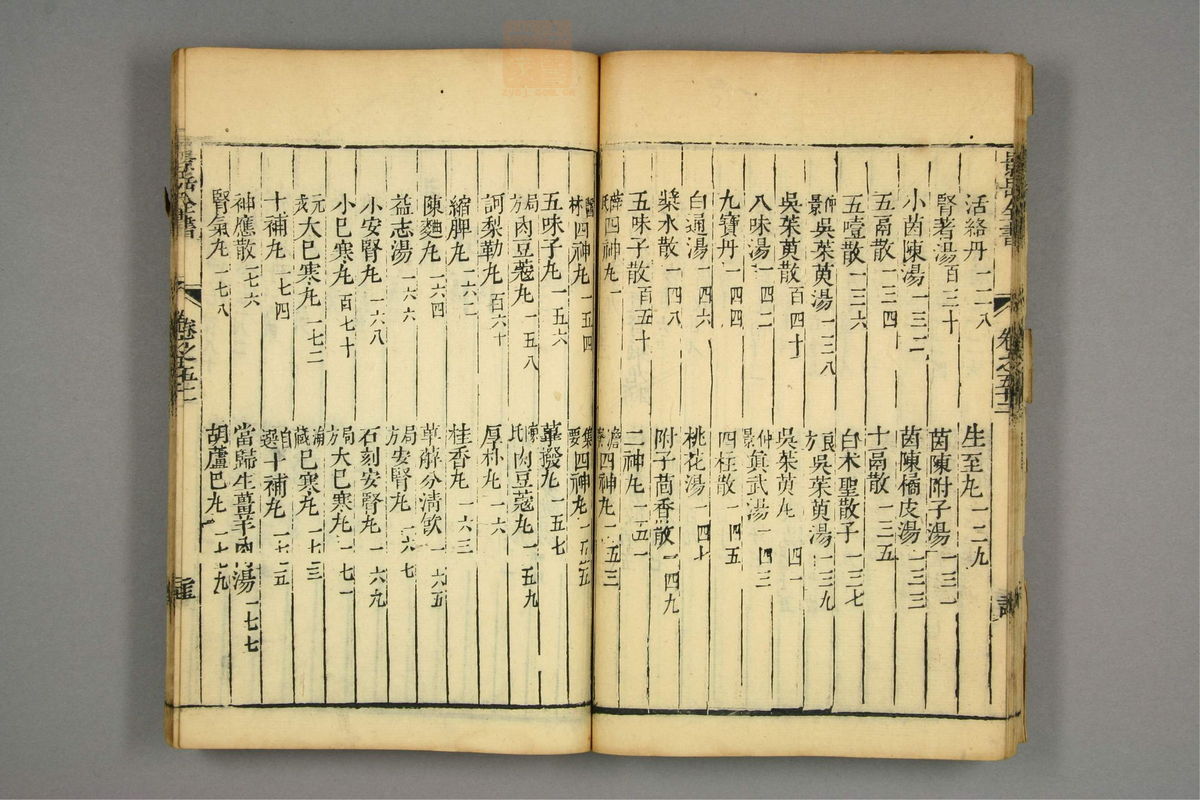 活絡丹 一二八 生至丸 一二九
腎著湯 百三十 茵陳附子湯 一三一
小茵陳湯 一三二 茵陳橘皮湯 一三三
五膈散 一三四 十膈散 一三五
五噎散 一三六 白朮聖散子 一三七
仲景吳茱萸湯 一三八 良方吳茱萸湯 一三九
吳茱萸散 百四十 吳茱萸丸 四一
八味湯 一四二 仲景真武湯 一四三
九寶丹 一四四 四柱散 一四五
白通湯 一四六 桃花湯 一四七
漿水散 一四八 附子茴香散 一四九
五味子散 百五十 二神丸 一五一
薛氏四神丸 一 澹寮四神丸 一五三
醫林四神丸 一五四 集要四神丸 一五五
五味子丸 一五六 蓽撥丸 一五七
局方肉豆蔻丸 一五八 陳氏肉豆蔻丸 一五九
訶梨勒丸 百六十 厚朴丸 一六
縮脾丸 一六二 桂香丸 一六三
陳麯丸 一六四 萆薢分清飲 一六五
益志湯 一六六 局方安腎丸 一六七
小安腎丸 一六八 石刻安腎丸 一六九
小巳寒丸 百七十 局方大巳寒丸 一七一
元戎大巳寒丸 一七二 海藏巳寒丸 一七三
十補丸 一七四 自選十補丸 一七五
神應散 一七六 當歸生薑羊肉湯 一七七
腎氣丸 一七八 胡蘆巴丸 一七九
卷之五十二